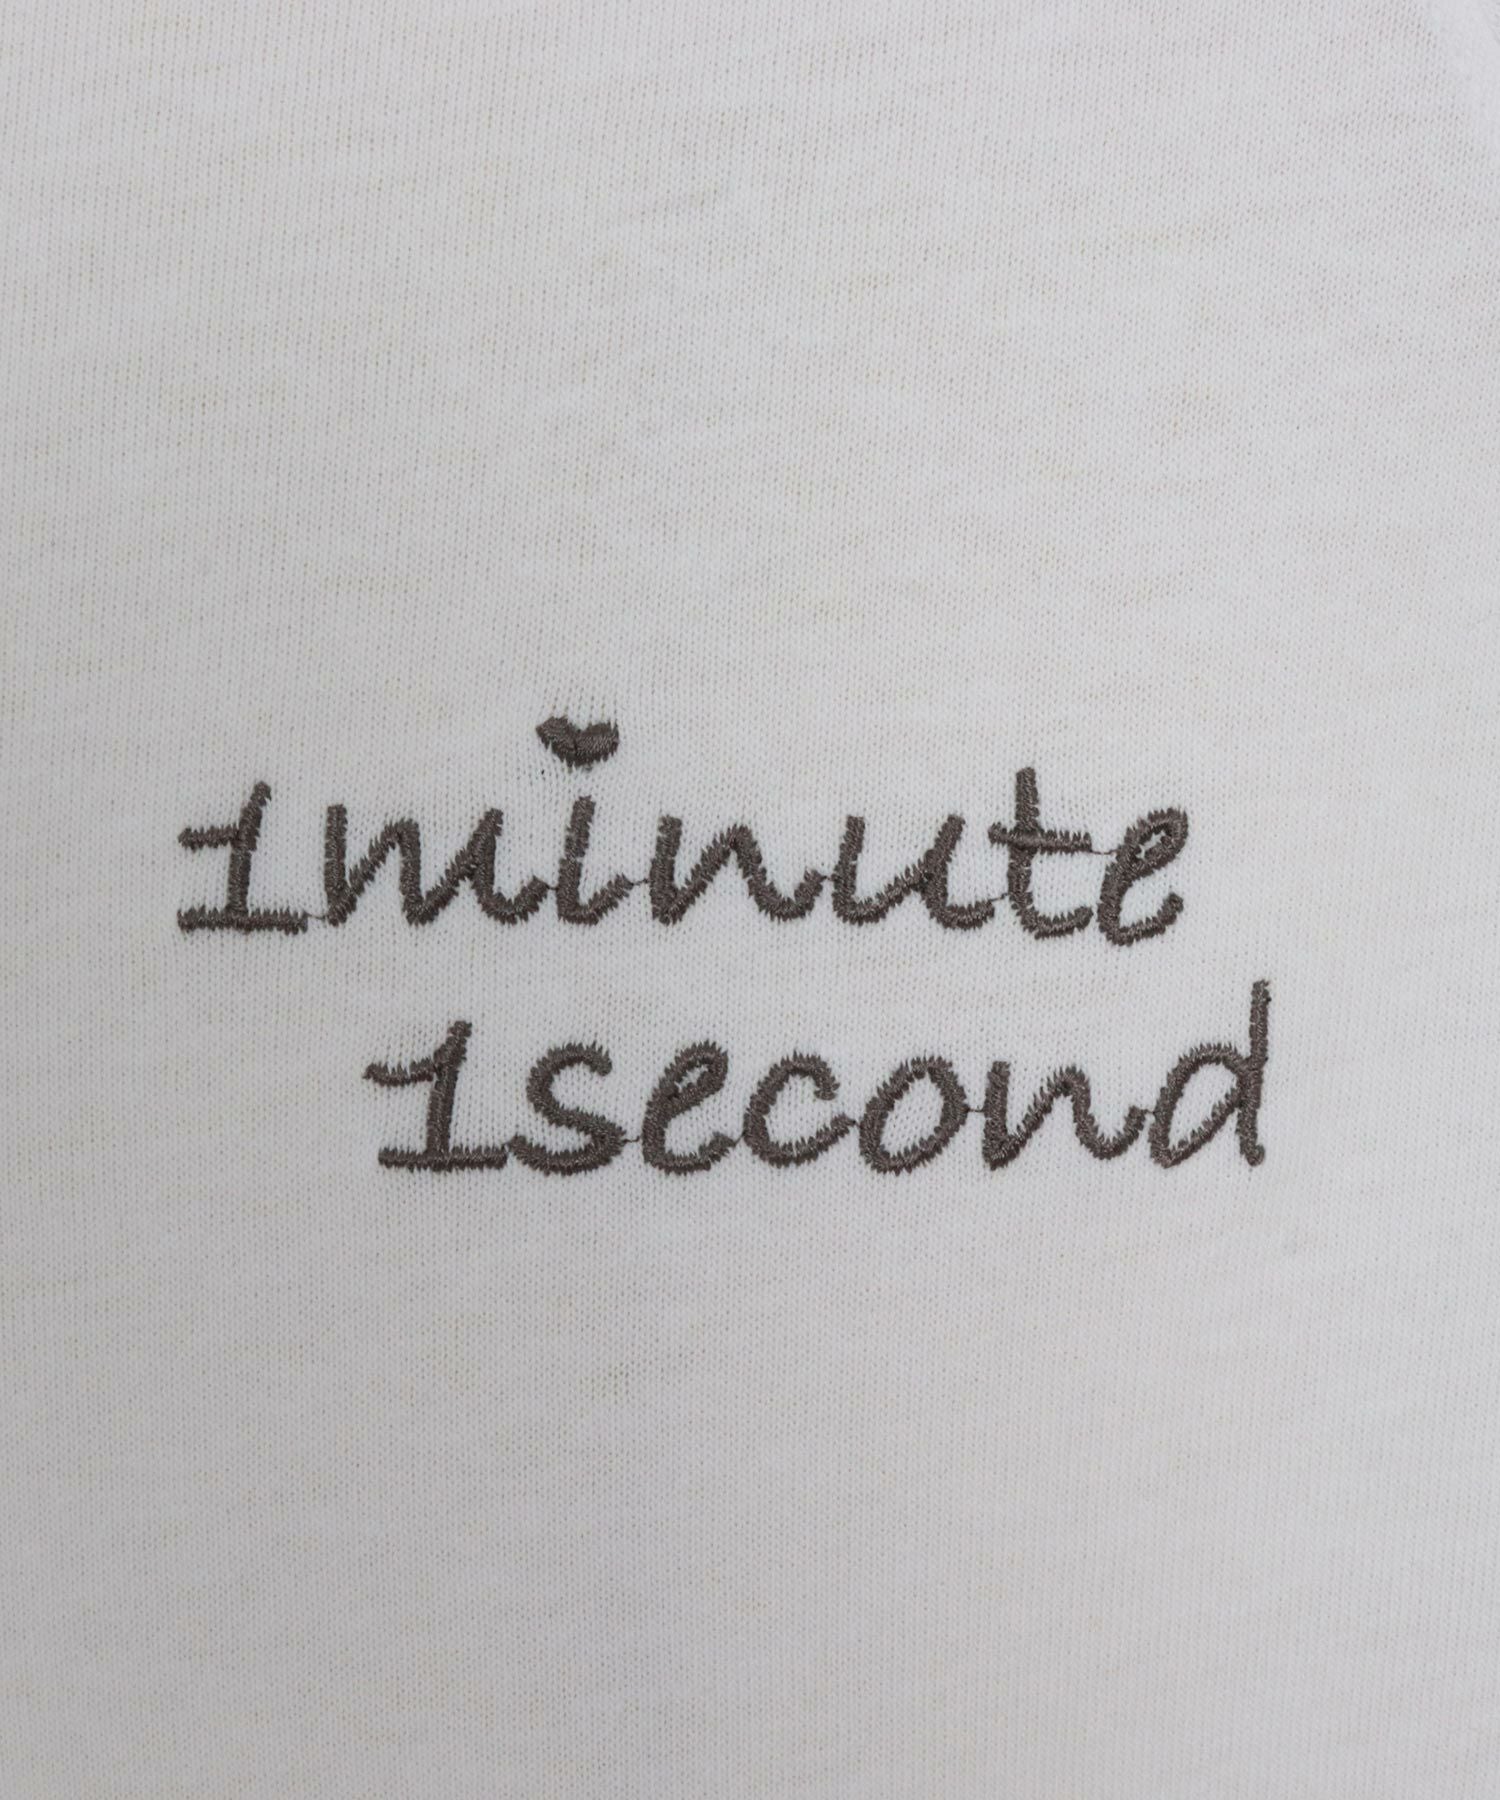 1minute
1second